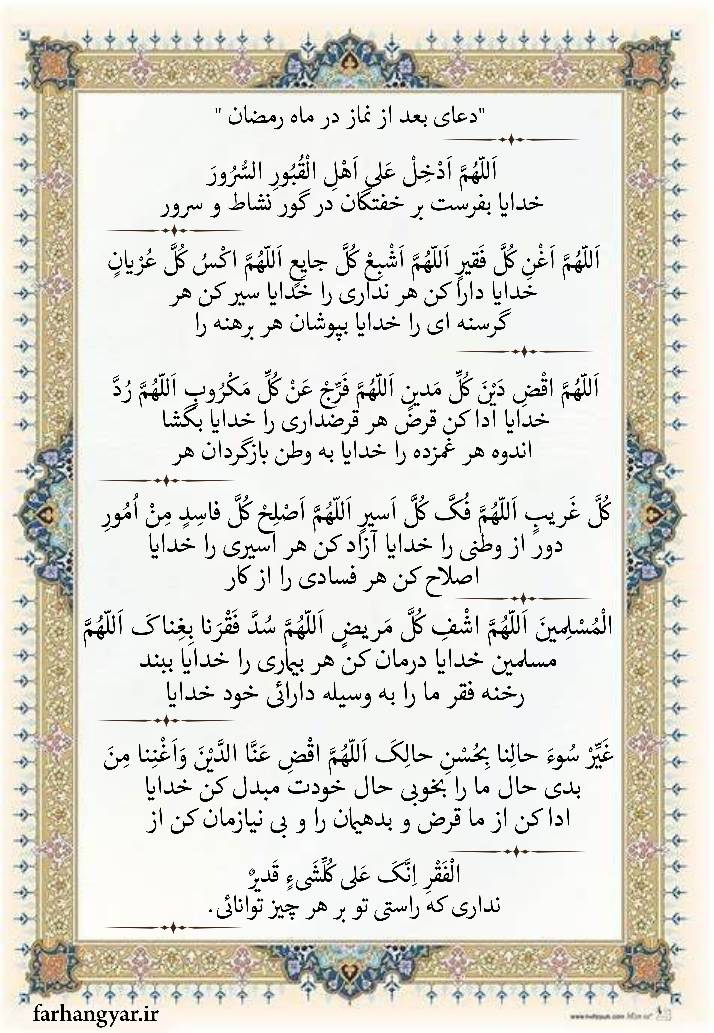 "دعای بعد از نماز در ماه رمضان "
اَللّهُمَّ اَدْخِلْ عَلی اَهْلِ الْقُبُورِ السُّرُورَ
خدایا بفرست بر خفتگان در گور نشاط و سرور
اَللّهُمَّ اَغْنِ کُلَّ فَقیرٍ اَللّهُمَّ اَشْبِعْ کُلَّ جایِعٍ اَللّهُمَّ اکْسُ کُلَّ عُرْیانٍ
خدایا دارا کن هر نداری را خدایا سیر کن هر
گرسنه ای را خدایا بپوشان هر برهنه را
اَللّهُمَّ اقْضِ دَیْنَ کُلِّ مَدینٍ اَللّهُمَّ فَرِّجْ عَنْ کُلِّ مَکْرُوبٍ اَللّهُمَّ رُدَّ
خدایا ادا کن قرض هر قرضداری را خدایا بگشا
اندوه هر غمزده را خدایا به وطن بازگردان هر
کُلَّ غَریبٍ اَللّهُمَّ فُکَّ کُلَّ اَسیرٍ اَللّهُمَّ اَصْلِحْ کُلَّ فاسِدٍ مِنْ اُمُورِ
دور از وطنی را خدایا آزاد کن هر اسیری را خدایا
اصلاح کن هر فسادی را از کار
الْمُسْلِمینَ اَللّهُمَّ اشْفِ کُلَّ مَریضٍ اَللّهُمَّ سُدَّ فَقْرَنا بِغِناکَ اَللّهُمَّ
مسلمین خدایا درمان کن هر بیماری را خدایا ببند
رخنه فقر ما را به وسیله دارائی خود خدایا
غَیِّرْ سُوءَ حالِنا بِحُسْنِ حالِکَ اَللّهُمَّ اقْضِ عَنَّا الدَّیْنَ وَاَغْنِنا مِنَ
بدی حال ما را بخوبی حال خودت مبدل کن خدایا
ادا کن از ما قرض و بدهیمان را و بی نیازمان کن از
الْفَقْرِ اِنَّکَ عَلی کُلِّشَیءٍ قَدیرٌ
نداری که راستی تو بر هر چیز توانائی.
farhangyar.ir